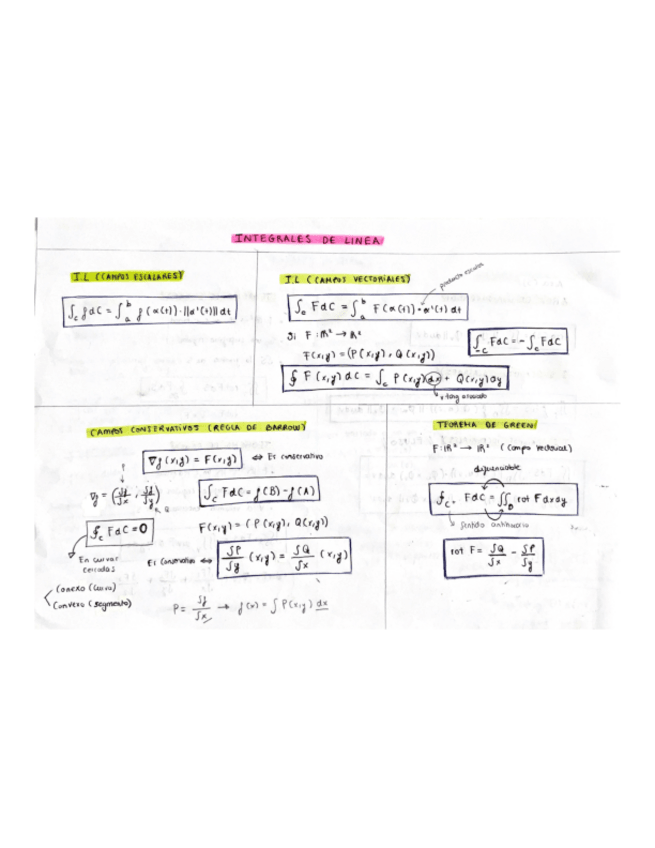 INTEGRALES DE LINEA
I.L (CAMPOS ESCALARES)
∫_c f dC = ∫_a^b f(α(t))·||α'(t)|| dt
I.L (CAMPOS VECTORIALES)
producto escalar
∫_c F dC = ∫_a^b F(α(t)) • α'(t) dt
Si F: ℝ² → ℝ²
F(x,y) = (P(x,y), Q(x,y))
∫_-C F dC = - ∫_c F dC
∮ F(x,y) dC = ∫_c P(x,y) dx + Q(x,y) dy
CAMPOS CONSERVATIVOS (REGLA DE BARROW)
∇f(x,y) = F(x,y) ⇔ Es conservativo
P
∇f = (∂f/∂x, ∂f/∂y)
Q
∫_C F dC = f(B) - f(A)
∮_c F dC = 0
F(x,y) = (P(x,y), Q(x,y))
En curvas cerradas
Es conservativo ⇔ ∂P/∂y (x,y) = ∂Q/∂x (x,y)
Conexo (curva)
Convexo (segmento)
P = ∂f/∂x → f(x) = ∫ P(x,y) dx
TEOREMA DE GREEN
F: ℝ² → ℝ² (campo vectorial)
diferenciable
∮_C+ F dC = ∬_D rot F dx dy
Sentido antihorario
rot F = ∂Q/∂x - ∂P/∂y